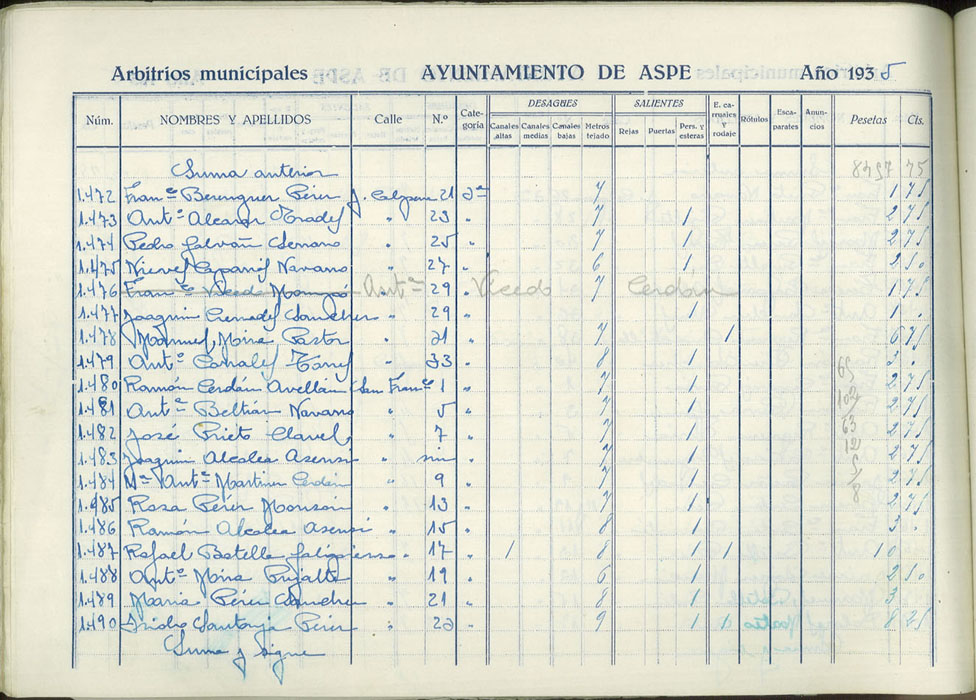 Arbitrios municipales AYUNTAMIENTO DE ASPE Año 1935
DESAGUES SALIENTES
Núm. NOMBRES Y APELLIDOS Calle N.º Cate-goría Canales altas Canales medias Canales bajas Metros tejado Rejas Puertas Pers. y enteras E. ca-rruajes y rodaje Rótulos Esca-parates Anun-cios Pesetas Cts.
Suma anterior 8457 75
1.472 Franco Berenguer Pérez J. Calpena 21 2ª 7 1 75
1.473 Antº Alcaraz Prades " 23 " 7 1 2 75
1.474 Pedro Galvañ Serrano " 25 " 7 1 2 75
1.475 Nieves Caparrós Navarro " 27 " 6 1 2 50
1.476 Franco Vicedo Antº 29 " Vicedo 7 Cerdán 1 75
1.477 Joaquin Cremades Sanchez " 29 " 1 1 "
1.478 Manuel Mira Pastor " 31 " 7 1 6 75
1.479 Antº " 33 " 8 1 3 "
1.480 Ramón Cerdán Avellán San Franco 1 " 7 1 2 75
1.481 Antº Beltrán Navarro " 5 " 7 1 2 75
1.482 José Prieto Clavel " 7 " 7 1 2 75
1.483 Joaquin Alcolea Asensi " sin " 7 1 2 75
1.484 Mª Antª Martinez Cerdán " 9 " 7 1 2 75
1.485 Rosa Pérez Monzón " 13 " 7 1 2 75
1.486 Ramón Alcolea Asensi " 15 " 8 1 3 "
1.487 Rafael Botella " 17 " 1 8 1 1 10
1.488 Antº Mira Pujalte " 19 " 6 1 2 50
1.489 Maria Pérez Sanchez " 21 " 8 1 3
1.490 Isidro Santonja Pérez " 23 " 9 1 1 8 25
Suma y sigue